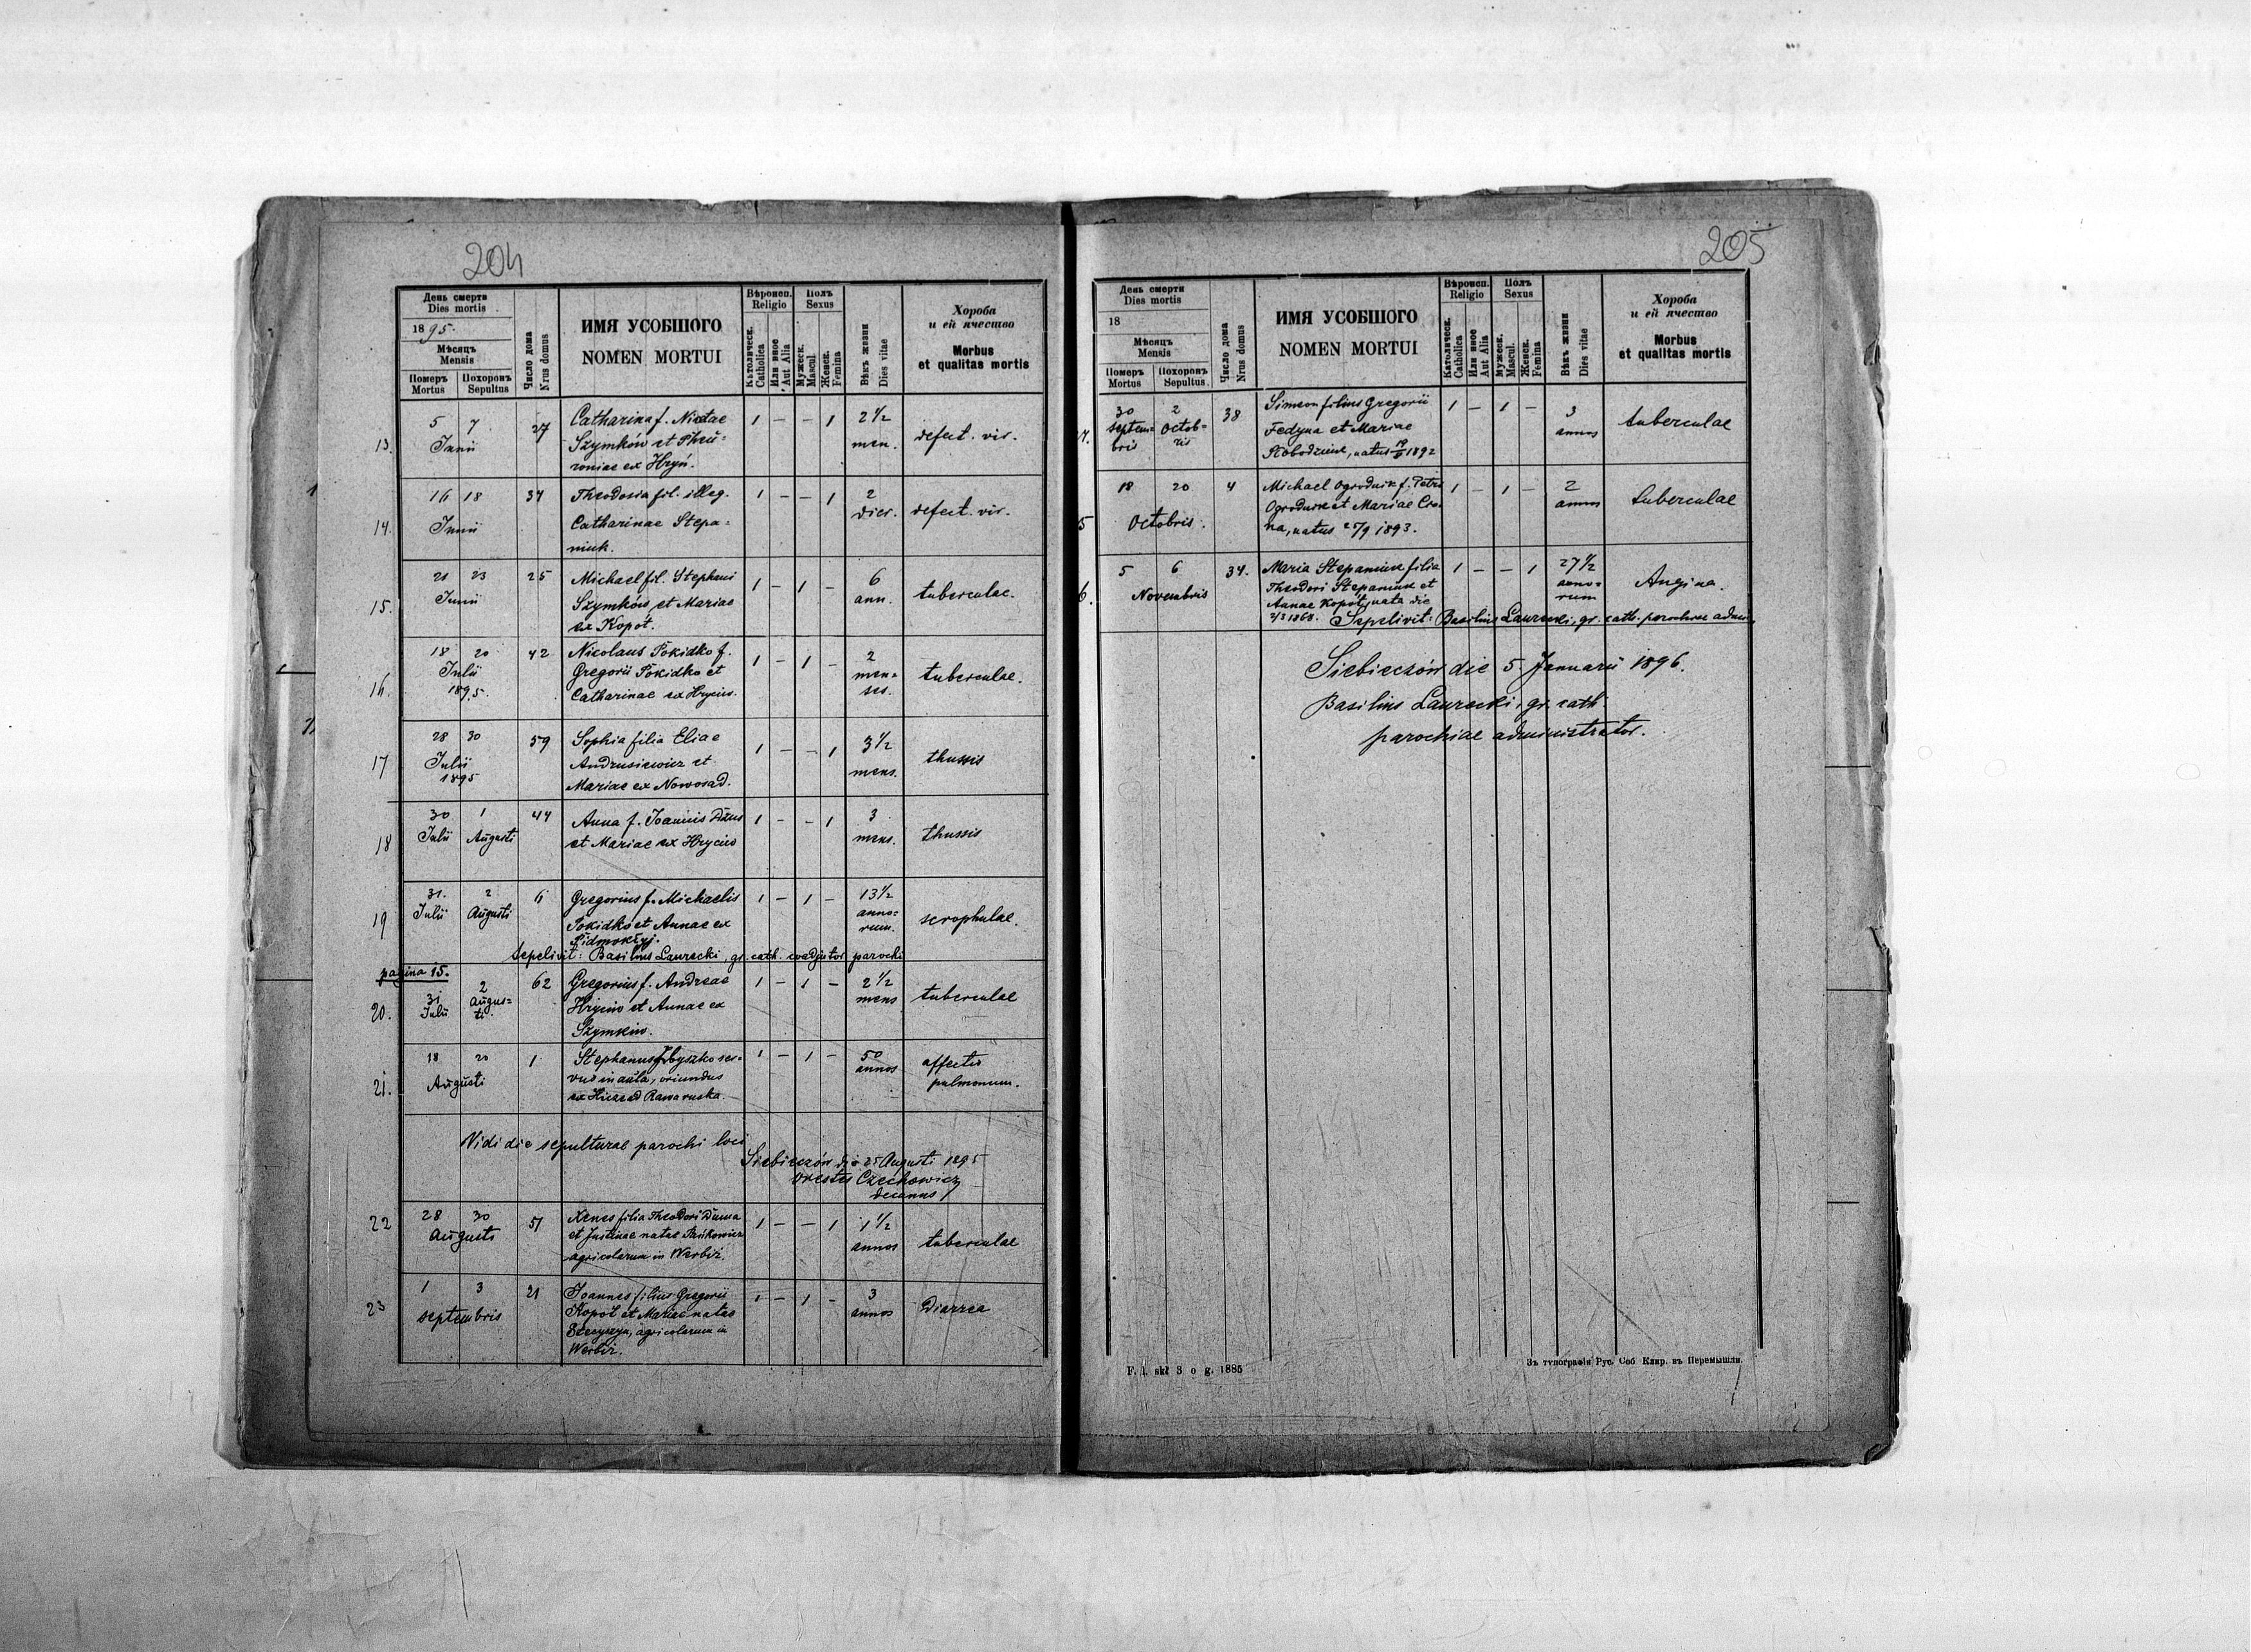 204
День смерти
Dies mortis
1895.
Мѣсяцъ
Mensis
Померъ
Mortus
Похоронъ
Sepultus
Число дома
Nrus domus
ИМЯ УСОБШОГО
NOMEN MORTUI
Вѣроисп.
Religio
Католическ.
Catholica
Или иное
Aut Alia
Полъ
Sexus
Мужеск.
Mascul.
Женск.
Femina
Вѣкъ жизни
Dies vitae
Хороба
и ей ячество
Morbus
et qualitas mortis
13. 5 7 Junii 27 Catharina f. Nicetae 1 – – 1 2 1/2 men. defect. vir.
Szymków et Phru-
roniae ex Hryń.
14. 16 18 Junii 34 Theodosia fil. illeg. 1 – – 1 2 dier. defect. vir.
Catharinae Stepa-
niuk.
15. 21 23 Junii 25 Michael fil. Stephani 1 – 1 – 6 ann. tuberculae.
Szymków et Mariae
ex Kopot.
16. 18 20 Julii 1895. 42 Nicolaus Pokidko f. 1 – 1 – 2 men-ses. tuberculae.
Gregorii Pokidko et
Catharinae ex Hryciw.
17 28 30 Julii 1895 59 Sophia filia Eliae 1 – – 1 3 1/2 mens. thussis
Andrusiewicz et
Mariae ex Nowosad.
18 30 Julii 1 Augusti 44 Anna f. Joannis 1 – – 1 3 mens. thussis
et Mariae ex Hryciw
19 31. Julii 2 Augusti 6 Gregorius f. Michaelis 1 – 1 – 13 1/2 anno-rum. scrophulae.
Pokidko et Annae ex
Pidmokłyj.
Sepelivit: Basilius Laurecki, gr. cath. coadjutor parochi
pagina 15.
20. 31 Julii 2 Augus-ti 62 Gregorius f. Andreae 1 – 1 – 2 1/2 mens tuberculae
Hryciw et Annae ex
Szymkiw.
21. 18 20 Augusti 1 Stephanus Zbyszko ser- 1 – 1 – 50 annos affectio
vus in aula, oriundus pulmonum.
ex Rawa ruska.
Vidi die sepulturae parochi loci
Siebieczów die 25 Augusti 1895
Orestes Czechowicz
decanus
22 28 30 Augusti 51 Xenes filia Theodori Duma 1 – – 1 1 1/2 annos tuberculae
et Justinae natae Pańkowicz
agricolarum in Werbiż.
23 1 3 septembris 21 Joannes filius Gregorii 1 – 1 – 3 annos Diarrea
Kopot et Mariae natae
agricolarum in
Werbiż.
205
День смерти
Dies mortis
18
Мѣсяцъ
Mensis
Померъ
Mortus
Похоронъ
Sepultus.
Число дома
Nrus domus
ИМЯ УСОБШОГО
NOMEN MORTUI
Вѣроисп.
Religio
Католическ.
Catholica
Или иное
Aut Alia
Полъ
Sexus
Мужеск.
Mascul.
Женск.
Femina
Вѣкъ жизни
Dies vitae
Хороба
и ей ячество
Morbus
et qualitas mortis
30 septem-bris 2 Octob-ris 38 Simeon filius Gregorii 1 – 1 – 3 annos tuberculae
Fedyna et Mariae
natus 1892
5 18 20 Octobris. 4 Michael Ogrodnik f. Petri 1 – 1 – 2 annos tuberculae
Ogrodnik et Mariae
natus 25/9 1893.
6. 5 6 Novembris 34. Maria Stepaniuk filia 1 – – 1 27 1/2 anno-rum Angina.
Theodori Stepaniuk et
Annae Kopot, nata die
2/3 1868. Sepelivit: Basilius Laurecki, gr. cath. parochiae admin.
Siebieczów die 5. Januarii 1896.
Basilius Laurecki, gr. cath.
parochiae administrator.
F. l. skł 3 o g. 1885
Зъ типографіи Рус. Соб Клир. въ Перемышли.